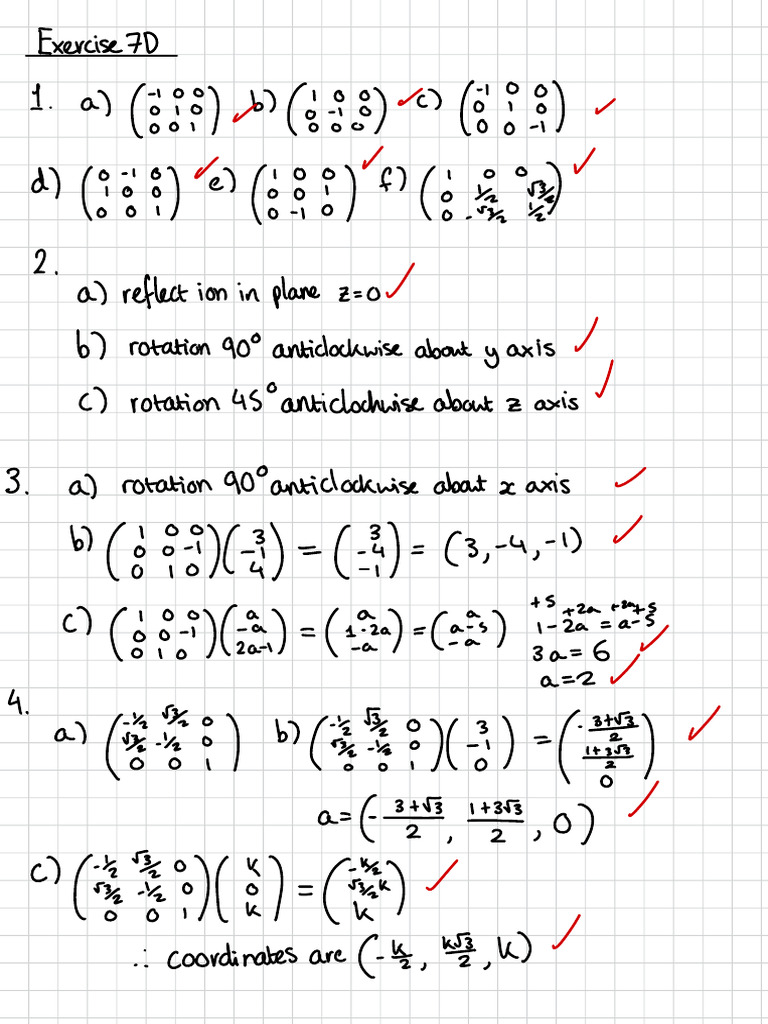 Exercise 7D
1. a) (-1 0 0 / 0 1 0 / 0 0 1) b) (1 0 0 / 0 -1 0 / 0 0 0) c) (-1 0 0 / 0 1 0 / 0 0 -1)
d) (0 -1 0 / 1 0 0 / 0 0 1) e) (1 0 0 / 0 0 1 / 0 -1 0) f) (1 0 0 / 0 1/2 √3/2 / 0 -√3/2 1/2)
2.
a) reflection in plane z=0
b) rotation 90° anticlockwise about y axis
c) rotation 45° anticlochwise about z axis
3. a) rotation 90° anticlockwise about x axis
b) (1 0 0 / 0 0 -1 / 0 1 0)(3 / -1 / 4) = (3 / -4 / -1) = (3, -4, -1)
c) (1 0 0 / 0 0 -1 / 0 1 0)(a / -a / 2a-1) = (a / 1-2a / -a) = (a / a-5 / -a)
+5 +2a +2a +5
1-2a = a-5
3a = 6
a = 2
4.
a) (-1/2 √3/2 0 / √3/2 -1/2 0 / 0 0 1) b) (-1/2 √3/2 0 / √3/2 -1/2 0 / 0 0 1)(3 / -1 / 0) = (-3+√3/2 / 1+3√3/2 / 0)
a = (-3+√3/2, 1+3√3/2, 0)
c) (-1/2 √3/2 0 / √3/2 -1/2 0 / 0 0 1)(k / 0 / k) = (-k/2 / √3/2 k / k)
∴ coordinates are (-k/2, k√3/2, k)